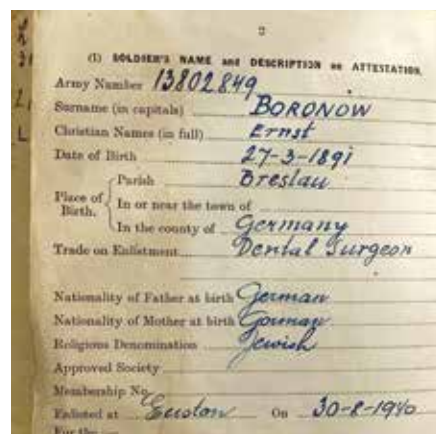 2
(1) SOLDIER'S NAME and DESCRIPTION on ATTESTATION.
Army Number 13802849
Surname (in capitals) BORONOW
Christian Names (in full) Ernst
Date of Birth 27-3-1891
Place of Birth. Parish Breslau
In or near the town of
In the county of Germany
Trade on Enlistment Dental Surgeon
Nationality of Father at birth German
Nationality of Mother at birth German
Religious Denomination Jewish
Approved Society
Membership No.
Enlisted at Euston On 30-8-1940
For the